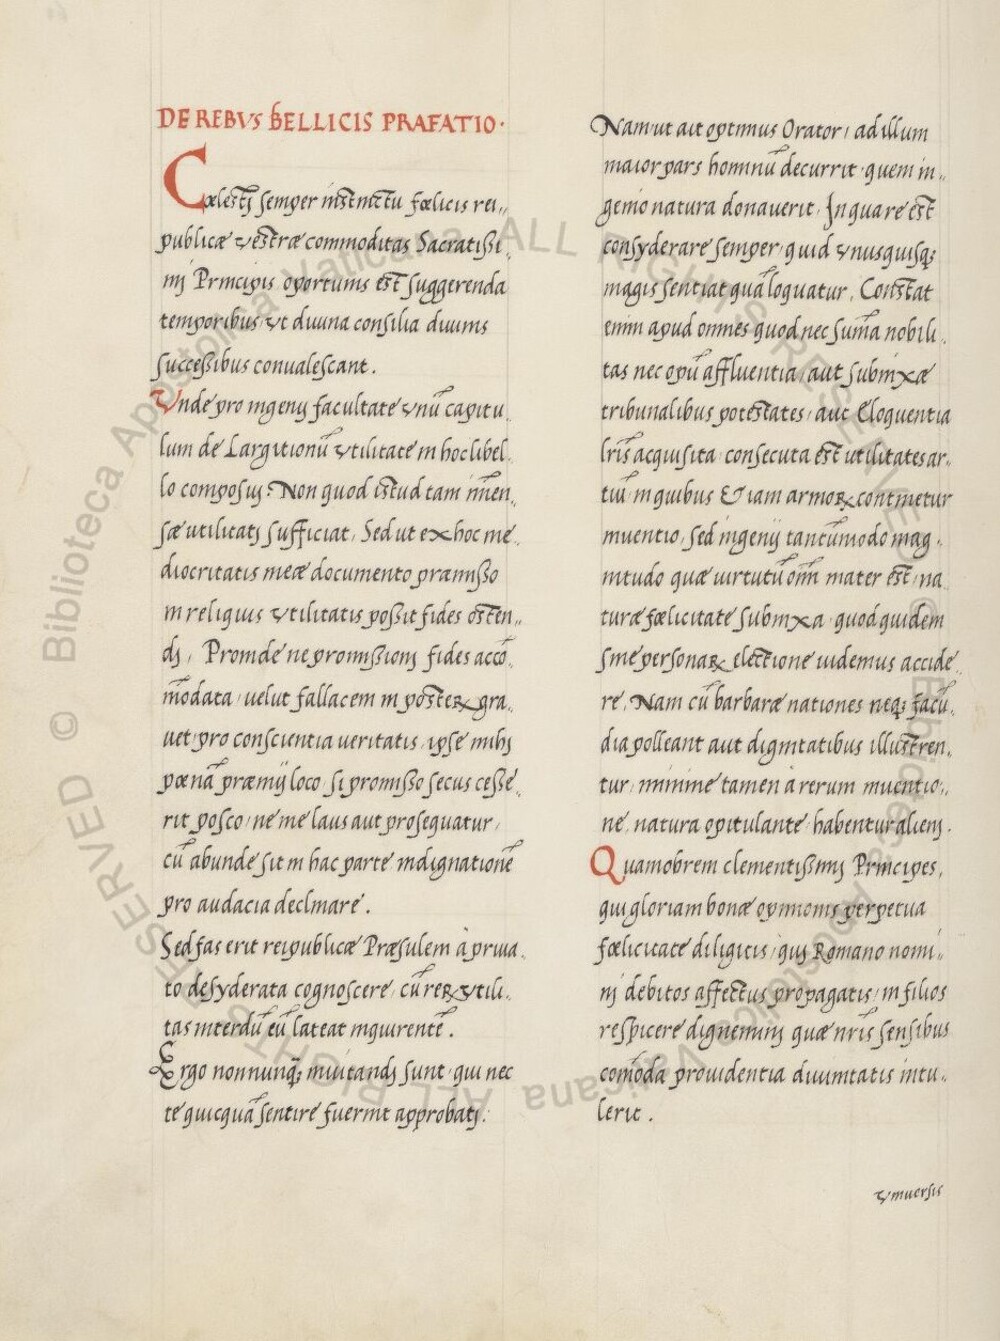 DE REBVS BELLICIS PRAFATIO·
Cælestj semper instinctu fœlicis rei,,
publicæ vestræ commoditas Sacratißi,
mj Principis oportunis est suggerenda
temporibus, vt diuina consilia diuinis
succeßibus conualescant.
Vnde pro ingenij facultate vnũ capitu,
lum de Largitionũ vtilitate in hoc libel,
lo composuj. Non quod istud tam im̃en,
sæ utilitatj sufficiat, Sed ut ex hoc me,
diocritatis meæ documento præmißo
in reliquis vtilitatis poßit fides osten,,
dj, Proinde ne promißionj fides acco͂,
m̃odata, uelut fallacem in posteꝝ gra,
uet, pro conscientia ueritatis, ipse mihj
pœnã præmij loco, si promißo secus ceße,
rit posco, ne me laus aut prosequatur,
cũ abunde sit in hac parte indignationẽ
pro audacia declinare.
Sed fas erit reipublicæ Præsulem à priua,
to desyderata cognoscere, cũ reꝝ vtili,
tas interdũ eũ lateat inquirentẽ.
Ergo nonnunq̃; inuitandj sunt, qui nec
te quicquã sentire fuerint approbatj.
Nam ut ait optimus Orator, ad illum
maior pars hominũ decurrit, quem in,,
genio natura donauerit. In qua re est
consyderare semper, quid vnusquisq;
magis sentiat quã loquatur. Constat
enim apud omnes quod nec sum̃a nobili,
tas nec opũ affluentia, aut submixæ
tribunalibus potestates, auc Eloquentia
lr̃is acquisita, consecuta est utilitates ar,
tiũ, in quibus Etiam armoꝝ continetur
inuentio, sed ingenij tantũmodo mag,
nitudo quæ uirtutũ om̃ mater est, na
turæ fœlicitate submixa, quod quidem
sine personaꝝ electione uidemus accide,
re. Nam cũ barbaræ nationes neq; facũ,
dia polleant aut dignitatibus illustren,
tur, minime tamen à rerum inuentio,,
ne, natura opitulante habentur alienj.
Quamobrem clementißimj Principes,
qui gloriam bonæ opinionis perpetua
fœlicitate diligitis, quj Romano nomi,,
nj debitos affectus propagatis, in filios
respicere dignemini quæ nr̃is sensibus
com̃oda prouidentia diuinitatis intu,
lerit.
vniuersis
© Biblioteca Apostolica Vaticana ALL RIGHTS RESERVED
© Biblioteca Apostolica Vaticana ALL RIGHTS RESERVED